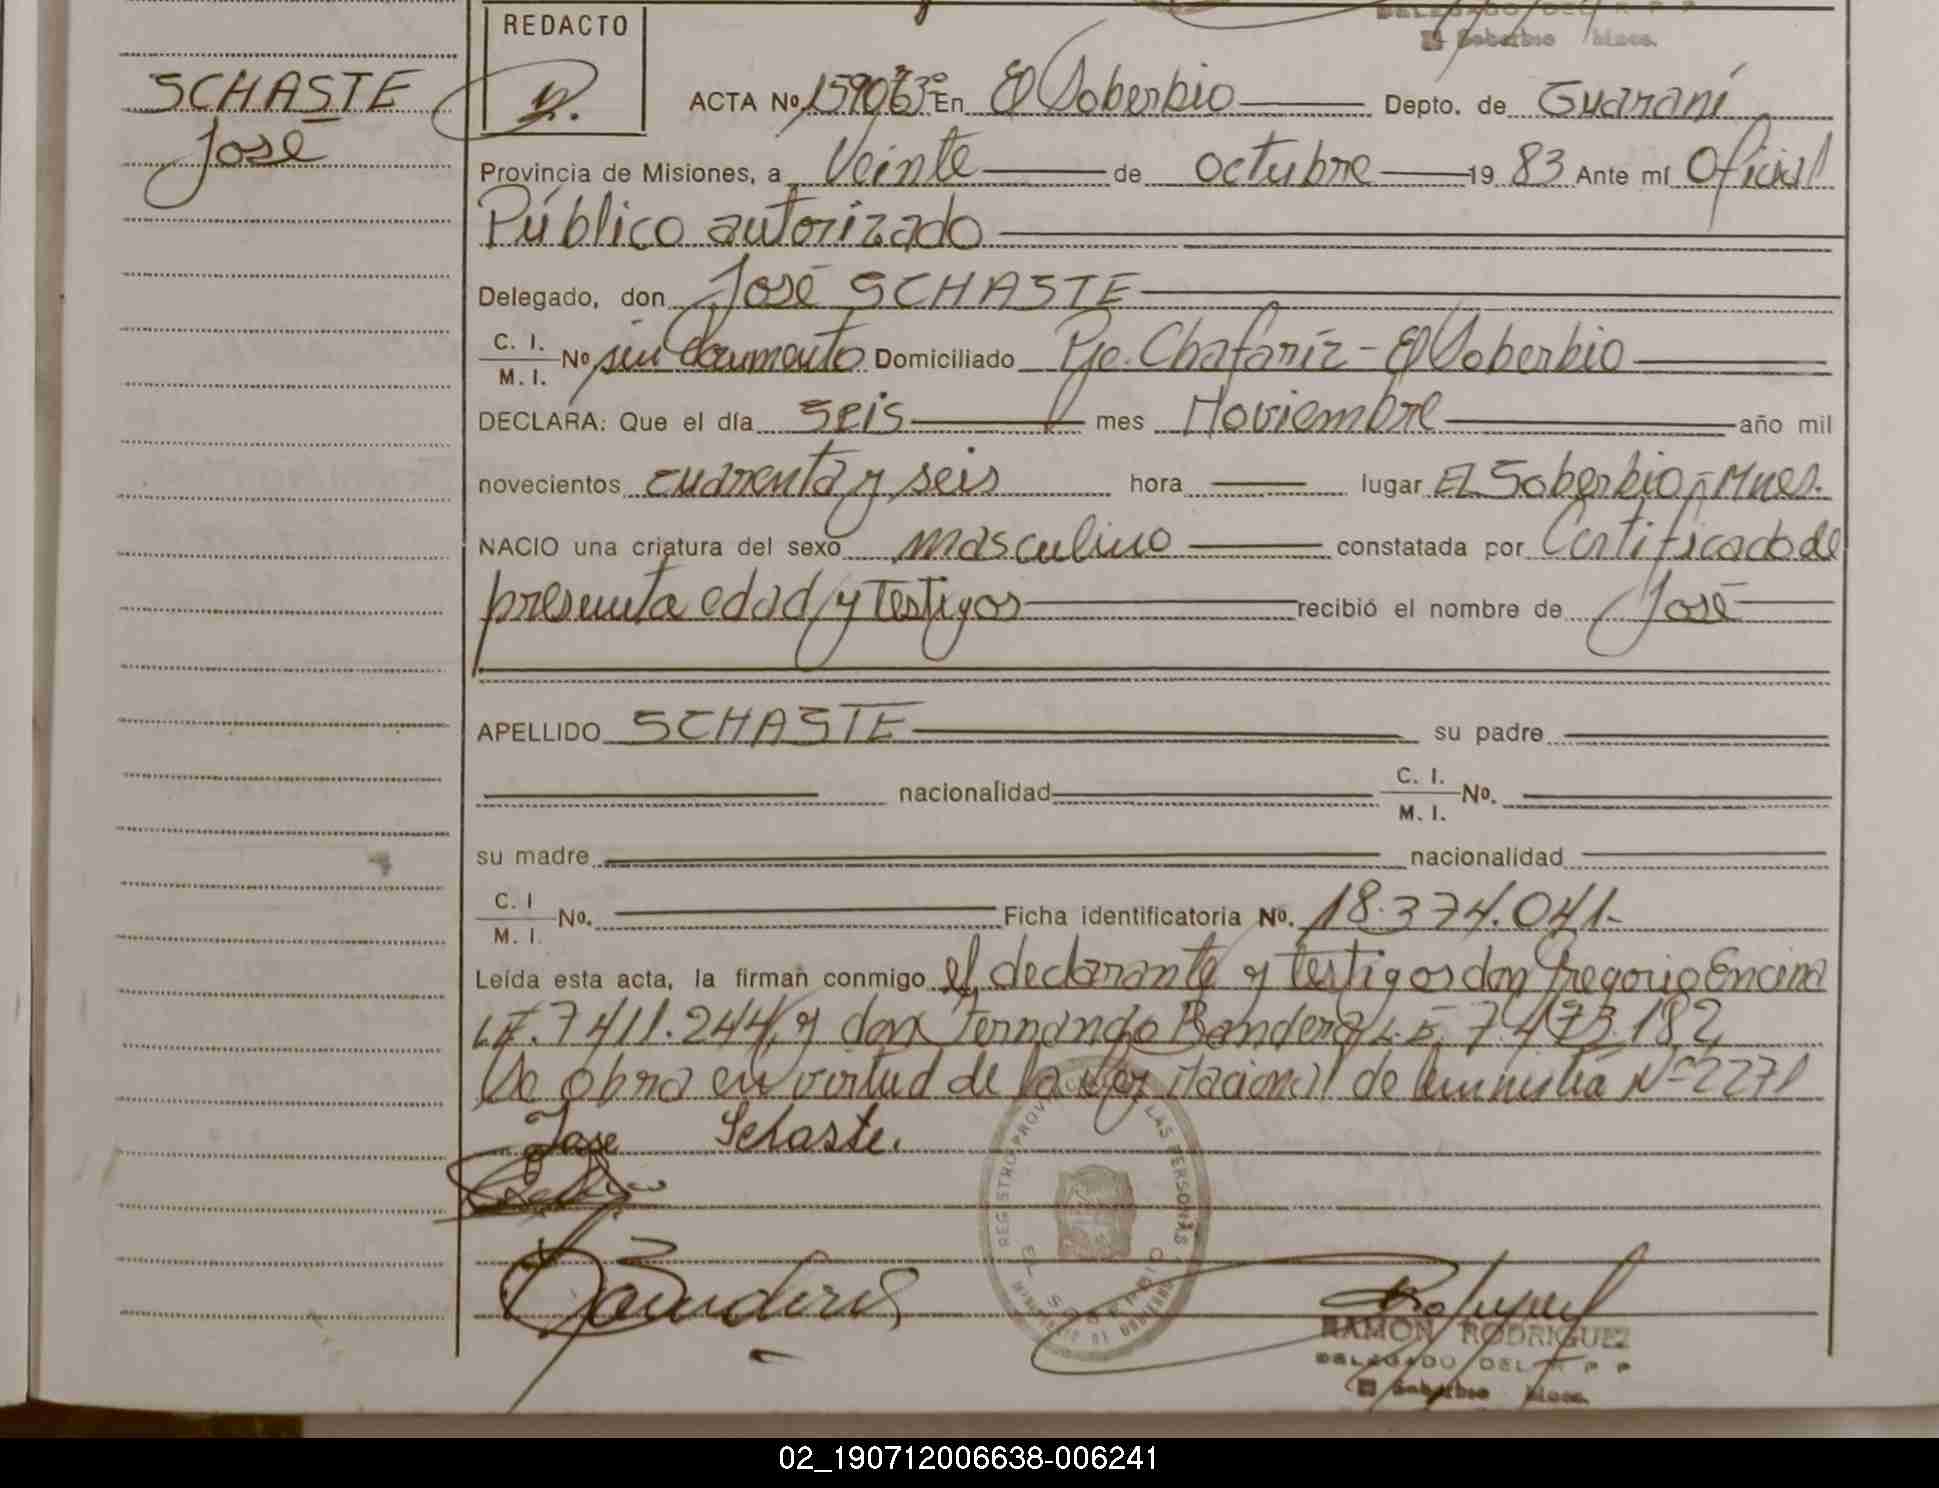 DELEGADO DEL R P P
El Soberbio Mnes.
REDACTO
SCHASTE
José
ACTA Nº En El Soberbio Depto. de Guaraní
Provincia de Misiones, a Veinte de octubre 19 83 Ante mí Oficial
Público autorizado
Delegado, don José SCHASTE
C. I.
M. I. Nº sin documento Domiciliado Pje. Chafariz - El Soberbio
DECLARA: Que el día seis mes Noviembre año mil
novecientos cuarenta y seis hora lugar El Soberbio - Mnes.
NACIO una criatura del sexo masculino constatada por Certificado de
presunta edad y testigos recibió el nombre de José
APELLIDO SCHASTE su padre
nacionalidad C. I.
M. I. No.
su madre nacionalidad
C. I
M. I. No. Ficha identificatoria No. 18.374.041-
Leída esta acta, la firman conmigo el declarante y testigos don Gregorio Encina
L.E. 7411.244, y don Fernando Bandera L.E. 7.473.182
Se obra en virtud de la Ley Nacional de Amnistía Nº 2271
Jose Schaste.
REGISTRO PROVINCIAL DE LAS PERSONAS
EL SOBERBIO
RAMON RODRIGUEZ
DELEGADO DEL R P P
El Soberbio Mnes.
02_190712006638-006241